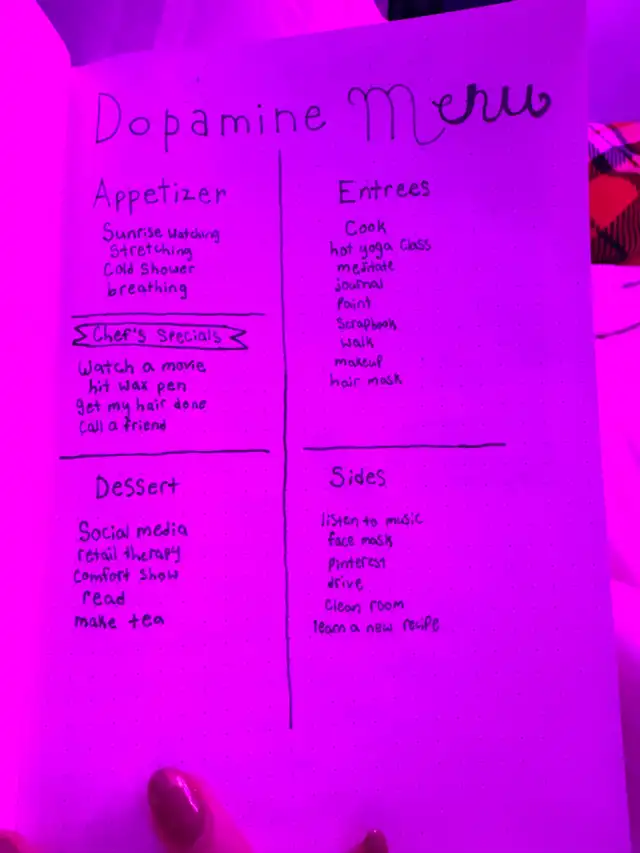 Dopamine Menu
Appetizer
Sunrise watching
Stretching
Cold Shower
breathing
Chef's Specials
Watch a movie
hit wax pen
get my hair done
Call a friend
Dessert
Social media
retail therapy
Comfort Show
read
make tea
Entrees
Cook
hot yoga class
meditate
journal
Paint
Scrapbook
walk
makeup
hair mask
Sides
listen to music
face mask
Pinterest
drive
Clean room
learn a new recipe